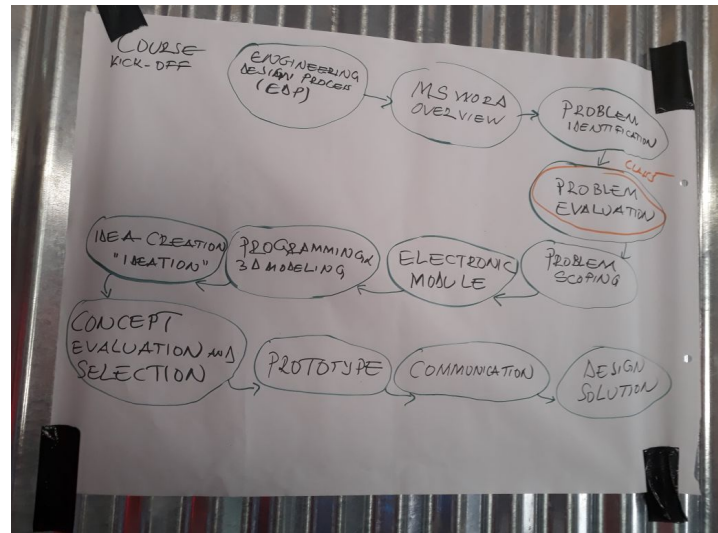 COURSE
KICK-OFF
ENGINEERING
DESIGN PROCESS
(EDP)
MS WORD
OVERVIEW
PROBLEM
IDENTIFICATION
CLASS
PROBLEM
EVALUATION
PROBLEM
SCOPING
ELECTRONIC
MODULE
PROGRAMMING &
3D MODELING
IDEA CREATION
"IDEATION"
CONCEPT
EVALUATION AND
SELECTION
PROTOTYPE
COMMUNICATION
DESIGN
SOLUTION